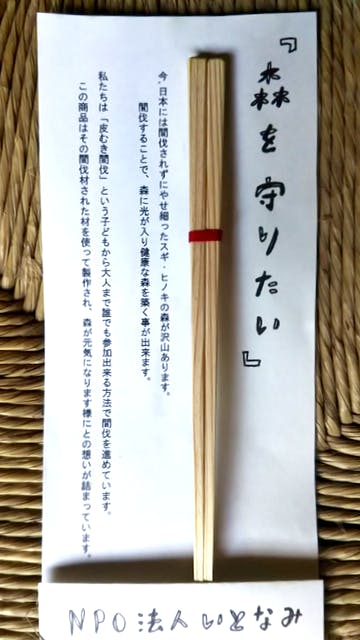 『森を守りたい』
今、日本には間伐されずにやせ細ったスギ・ヒノキの森が沢山あります。
間伐することで、森に光が入り健康な森を築く事が出来ます。
私たちは「皮むき間伐」という子どもから大人まで誰でも参加出来る方法で間伐を進めています。
この商品はその間伐材された材を使って製作され、森が元気になります様にとの想いが詰まっています。
NPO法人いとなみ